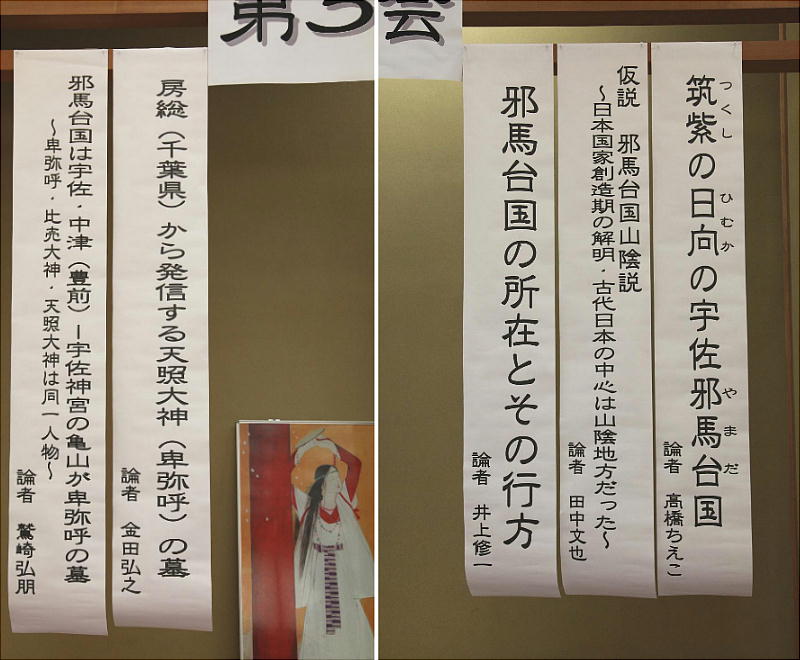 第3
つくし ひむか やまだ
筑紫の日向の宇佐邪馬台国
論者 高橋ちえこ
仮説 邪馬台国山陰説
～日本国家創造期の解明・古代日本の中心は山陰地方だった～
論者 田中文也
邪馬台国の所在とその行方
論者 井上修一
房総（千葉県）から発信する天照大神（卑弥呼）の墓
論者 金田弘之
邪馬台国は宇佐・中津（豊前）ー宇佐神宮の亀山が卑弥呼の墓
～卑弥呼・比売大神・天照大神は同一人物～
論者 鷲崎弘朋